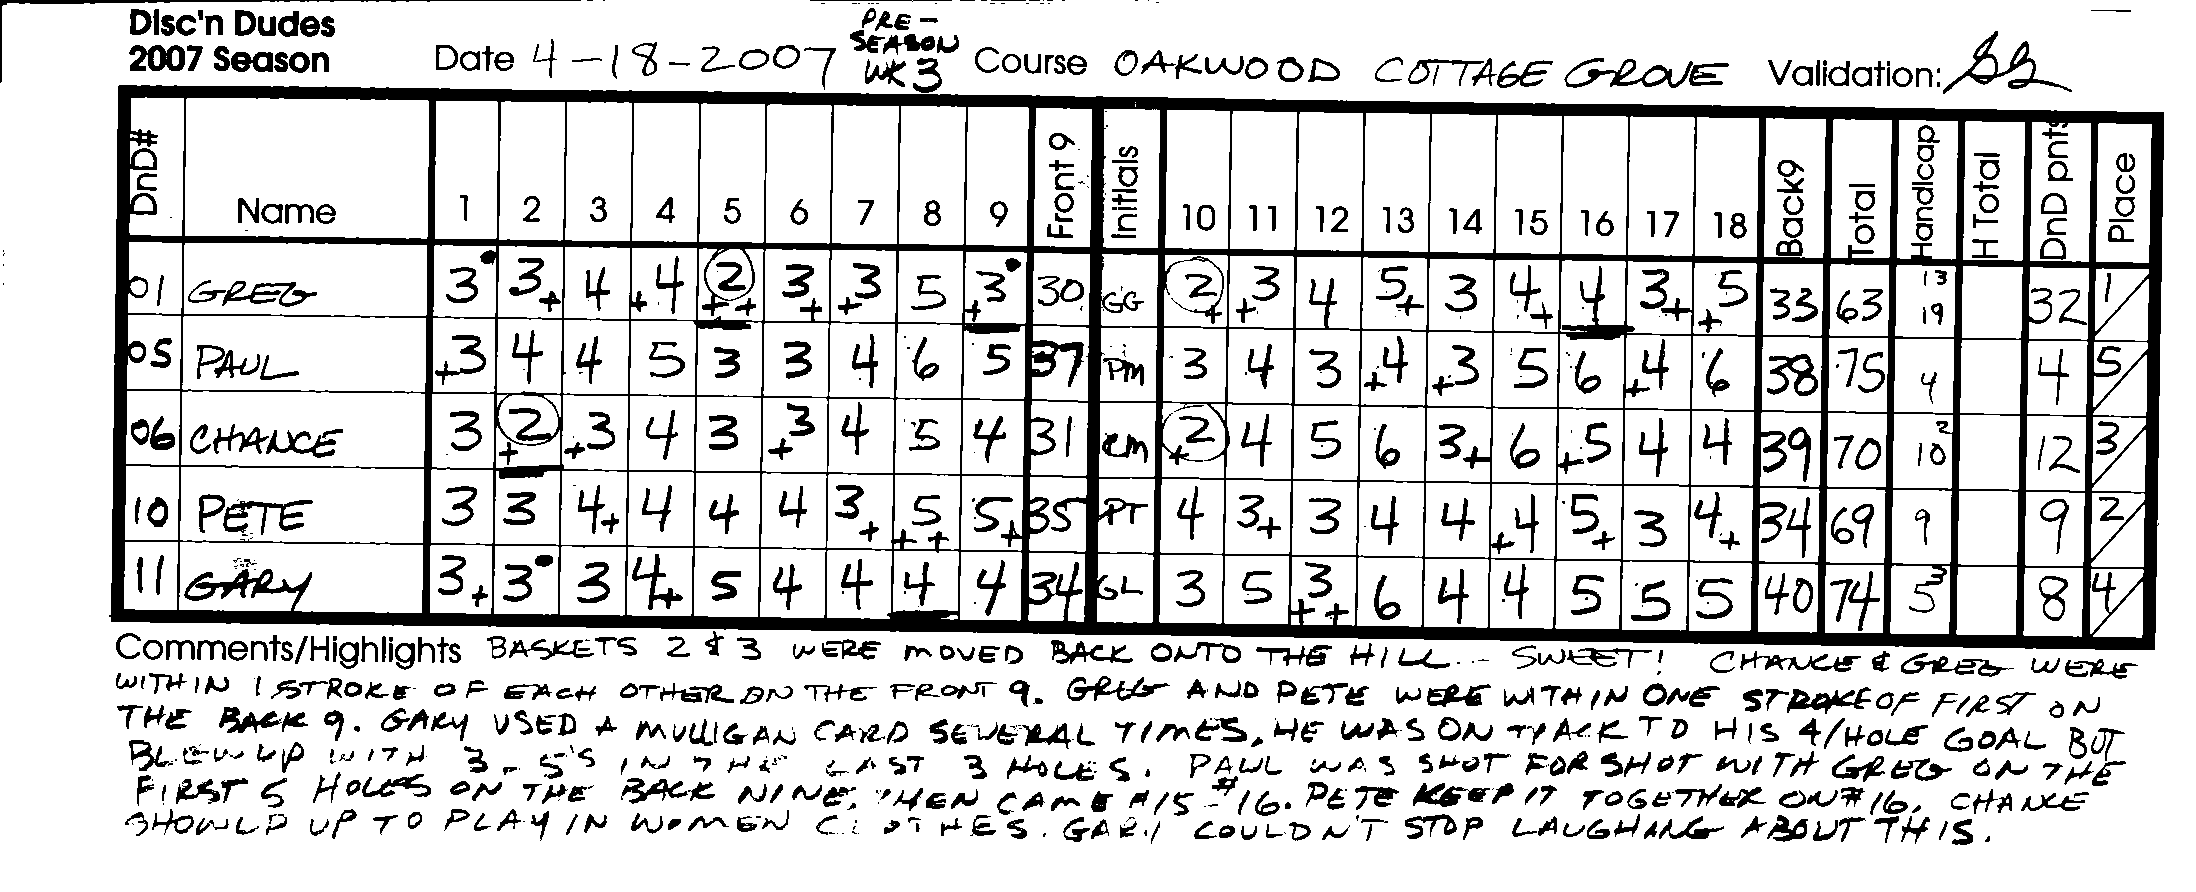 Disc'n Dudes
2007 Season Date 4-18-2007 PRE-SEASON WK 3 Course OAKWOOD COTTAGE GROVE Validation:
DnD# Name 1 2 3 4 5 6 7 8 9 Front 9 Initials 10 11 12 13 14 15 16 17 18 Back9 Total Handicap H Total DnD pnts Place
01 GREG 3 3+ 4 +4 2++ 3+ +3 5 +3 30 GG 2+ +3 4 5+ 3 4+ 4 3+ +5 33 63 13 19 32 1
05 PAUL +3 4 4 5 3 3 4 6 5 37 PM 3 4 3 +4 +3 5 6 +4 6 38 75 4 4 5
06 CHANCE 3 2+ +3 4 3 +3 4 5 4 31 CM 2+ 4 5 6 3+ 6 +5 4 4 39 70 2 10 12 3
10 PETE 3 3 4+ 4 4 4 3+ 5++ 5+ 35 PT 4 3+ 3 4 4 +4 5+ 3 4+ 34 69 9 9 2
11 GARY 3+ 3 3 4+ 5 4 4 4 4 34 GL 3 5 3++ 6 4 4 5 5 5 40 74 3 5 8 4
Comments/Highlights BASKETS 2 & 3 WERE MOVED BACK ONTO THE HILL... SWEET! CHANCE & GREG WERE
WITHIN 1 STROKE OF EACH OTHER ON THE FRONT 9. GREG AND PETE WERE WITHIN ONE STROKE OF FIRST ON
THE BACK 9. GARY USED A MULLIGAN CARD SEVERAL TIMES, HE WAS ON TRACK TO HIS 4/HOLE GOAL BUT
BLEW UP WITH 3-5'S IN THE LAST 3 HOLES. PAUL WAS SHOT FOR SHOT WITH GREG ON THE
FIRST 5 HOLES ON THE BACK NINE, THEN CAME #15-#16. PETE KEEP IT TOGETHER ON #16. CHANCE
SHOWED UP TO PLAY IN WOMEN CLOTHES. GARY COULDN'T STOP LAUGHANG ABOUT THIS.